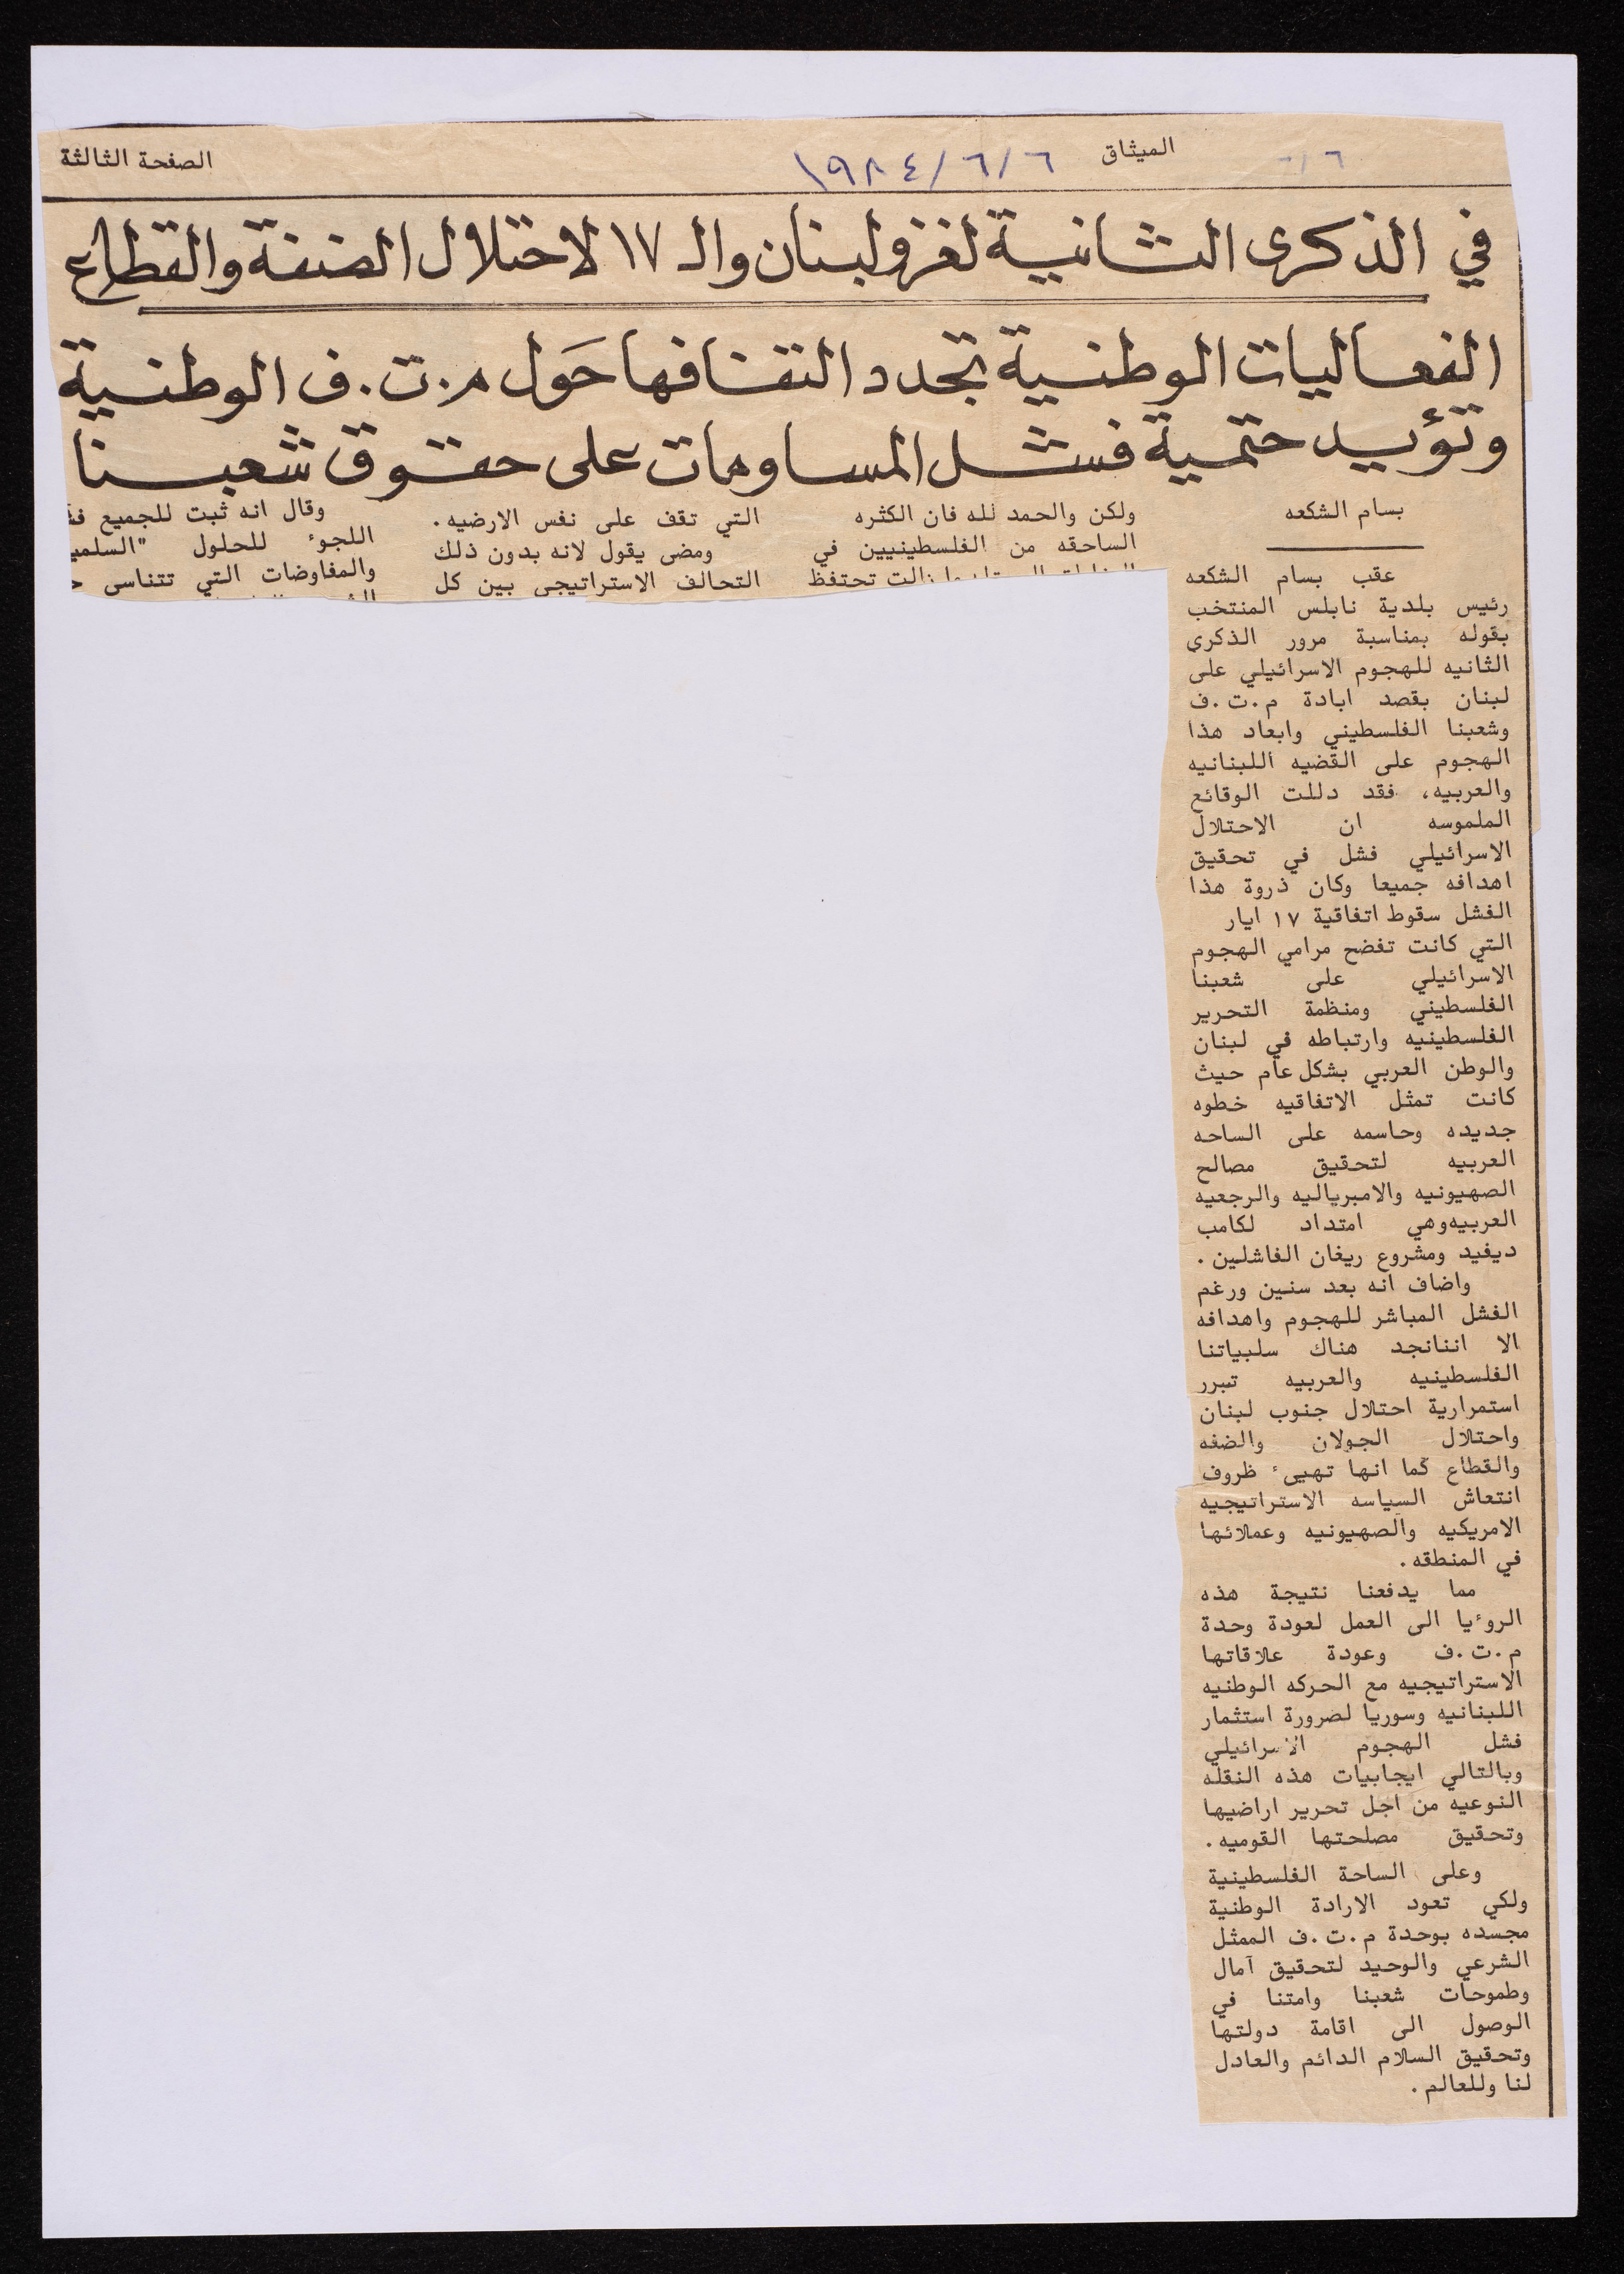 الميثاق
١٩٨٤/٦/٦
الصفحة الثالثة
في الذكرى الثانية لغزو لبنان والـ ١٧ لاحتلال الضفة والقطاع
الفعاليات الوطنية تجدد التفافها حول م.ت.ف الوطنية
وتؤيد حتمية فشل المساومات على حقوق شعبنا
بسام الشكعه
عقب بسام الشكعه
رئيس بلدية نابلس المنتخب
بقوله بمناسبة مرور الذكرى
الثانيه للهجوم الاسرائيلي على
لبنان بقصد ابادة م.ت.ف
وشعبنا الفلسطيني وابعاد هذا
الهجوم على القضيه اللبنانيه
والعربيه، فقد دللت الوقائع
الملموسه ان الاحتلال
الاسرائيلي فشل في تحقيق
اهدافه جميعا وكان ذروة هذا
الفشل سقوط اتفاقية ١٧ ايار
التي كانت تفضح مرامي الهجوم
الاسرائيلي على شعبنا
الفلسطيني ومنظمة التحرير
الفلسطينيه وارتباطه في لبنان
والوطن العربي بشكل عام حيث
كانت تمثل الاتفاقيه خطوه
جديده وحاسمه على الساحه
العربيه لتحقيق مصالح
الصهيونيه والامبرياليه والرجعيه
العربيه‌وهي امتداد لكامب
ديفيد ومشروع ريغان الفاشلين.
واضاف انه بعد سنين ورغم
الفشل المباشر للهجوم واهدافه
الا اننانجد هناك سلبياتنا
الفلسطينيه والعربيه تبرر
استمرارية احتلال جنوب لبنان
واحتلال الجولان والضفه
والقطاع كما انها تهيىء ظروف
انتعاش السياسه الاستراتيجيه
الامريكيه والصهيونيه وعملائها
في المنطقه.
مما يدفعنا نتيجة هذه
الروءيا الى العمل لعودة وحدة
م.ت.ف وعودة علاقاتها
الاستراتيجيه مع الحركه الوطنيه
اللبنانيه وسوريا لضرورة استثمار
فشل الهجوم الاسرائيلي
وبالتالي ايجابيات هذه النقله
النوعيه من اجل تحرير اراضيها
وتحقيق مصلحتها القوميه.
وعلى الساحة الفلسطينية
ولكي تعود الارادة الوطنية
مجسده بوحدة م.ت.ف الممثل
الشرعي والوحيد لتحقيق آمال
وطموحات شعبنا وامتنا في
الوصول الى اقامة دولتها
وتحقيق السلام الدائم والعادل
لنا وللعالم.
ولكن والحمد لله فان الكثره
الساحقه من الفلسطينيين في
زالت تحتفظ
التي تقف على نفس الارضيه.
ومضى يقول لانه بدون ذلك
التحالف الاستراتيجي بين كل
وقال انه ثبت للجميع
اللجوء للحلول "السلمي
والمفاوضات التي تتناسى